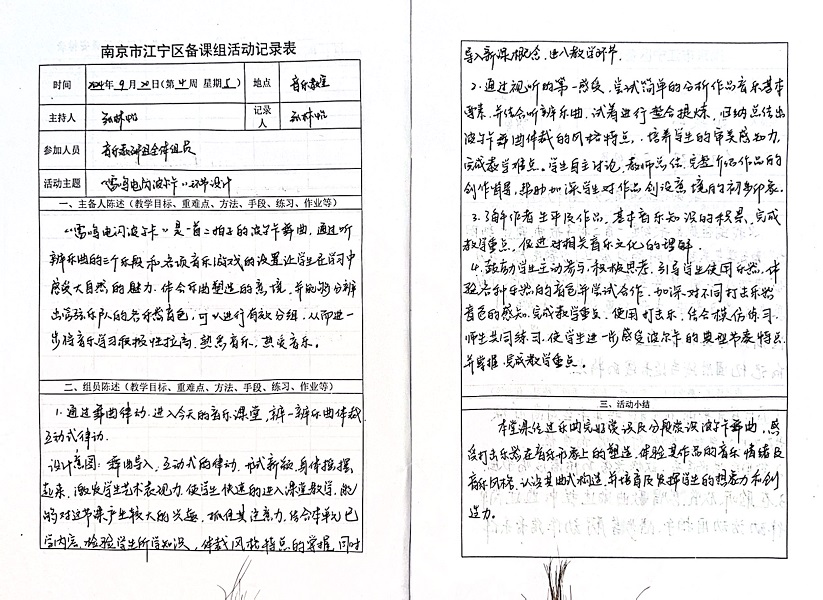 南京市江宁区备课组活动记录表
时间 2024年9月20日(第4周 星期5) 地点 音乐教室
主持人 记录人
参加人员 音乐教研组全体组员
活动主题 《雷鸣电闪波尔卡》环节设计
一、主备人陈述（教学目标、重难点、方法、手段、练习、作业等）
《雷鸣电闪波尔卡》是一首二拍子的波尔卡舞曲，通过听
辨乐曲的三个乐段和各该音乐游戏的设置让学生在学习中
感受大自然的魅力，体会乐曲塑造的意境，并能够分辨
出管弦乐队的各乐器音色，可以进行有效分组，从而进一
步将音乐学习积极性拉高，熟悉音乐，热爱音乐。
二、组员陈述（教学目标、重难点、方法、手段、练习、作业等）
1.通过舞曲律动，进入今天的音乐课堂，辨一辨乐曲体裁
互动式律动。
设计意图：舞曲导入，互动式的律动，形式新颖，身体摇摆
起来，激发学生艺术表现力，使学生快速的进入课堂教学，能
够对这节课产生较大的兴趣，抓住其注意力，结合本单元已
学内容，检验学生所学知识，体裁风格特点的掌握，同时
导入新课概念，进入教学环节。
2.通过视听的第一感受，尝试简单的分析作品音乐基本
要素，并结合听辨乐曲，试着进行整合提炼，归纳总结出
波尔卡舞曲体裁的风格特点，培养学生的审美感知力，
完成教学难点。学生自主讨论，教师总结，完整介绍作品的
创作背景，帮助加深学生对作品创设意境的初步印象。
3.了解作者生平及作品，基本音乐知识的积累，完成
教学重点，促进对相关音乐文化的理解。
4.鼓励学生主动参与，积极思考，引导学生使用乐器，体
验各种乐器的音色并尝试合作，加深对不同打击乐器
音色的感知，完成教学重点，使用打击乐，结合模仿练习，
师生共同练习，使学生进一步感受波尔卡的典型节奏特点
并掌握，完成教学重点。
三、活动小结
本堂课经过乐曲完整赏识及分段赏识波尔卡舞曲，感
受打击乐器在音乐形象上的塑造，体验其作品的音乐情绪及
音乐风格，认识其曲式构造，并培育及发挥学生的想象力和创
造力。